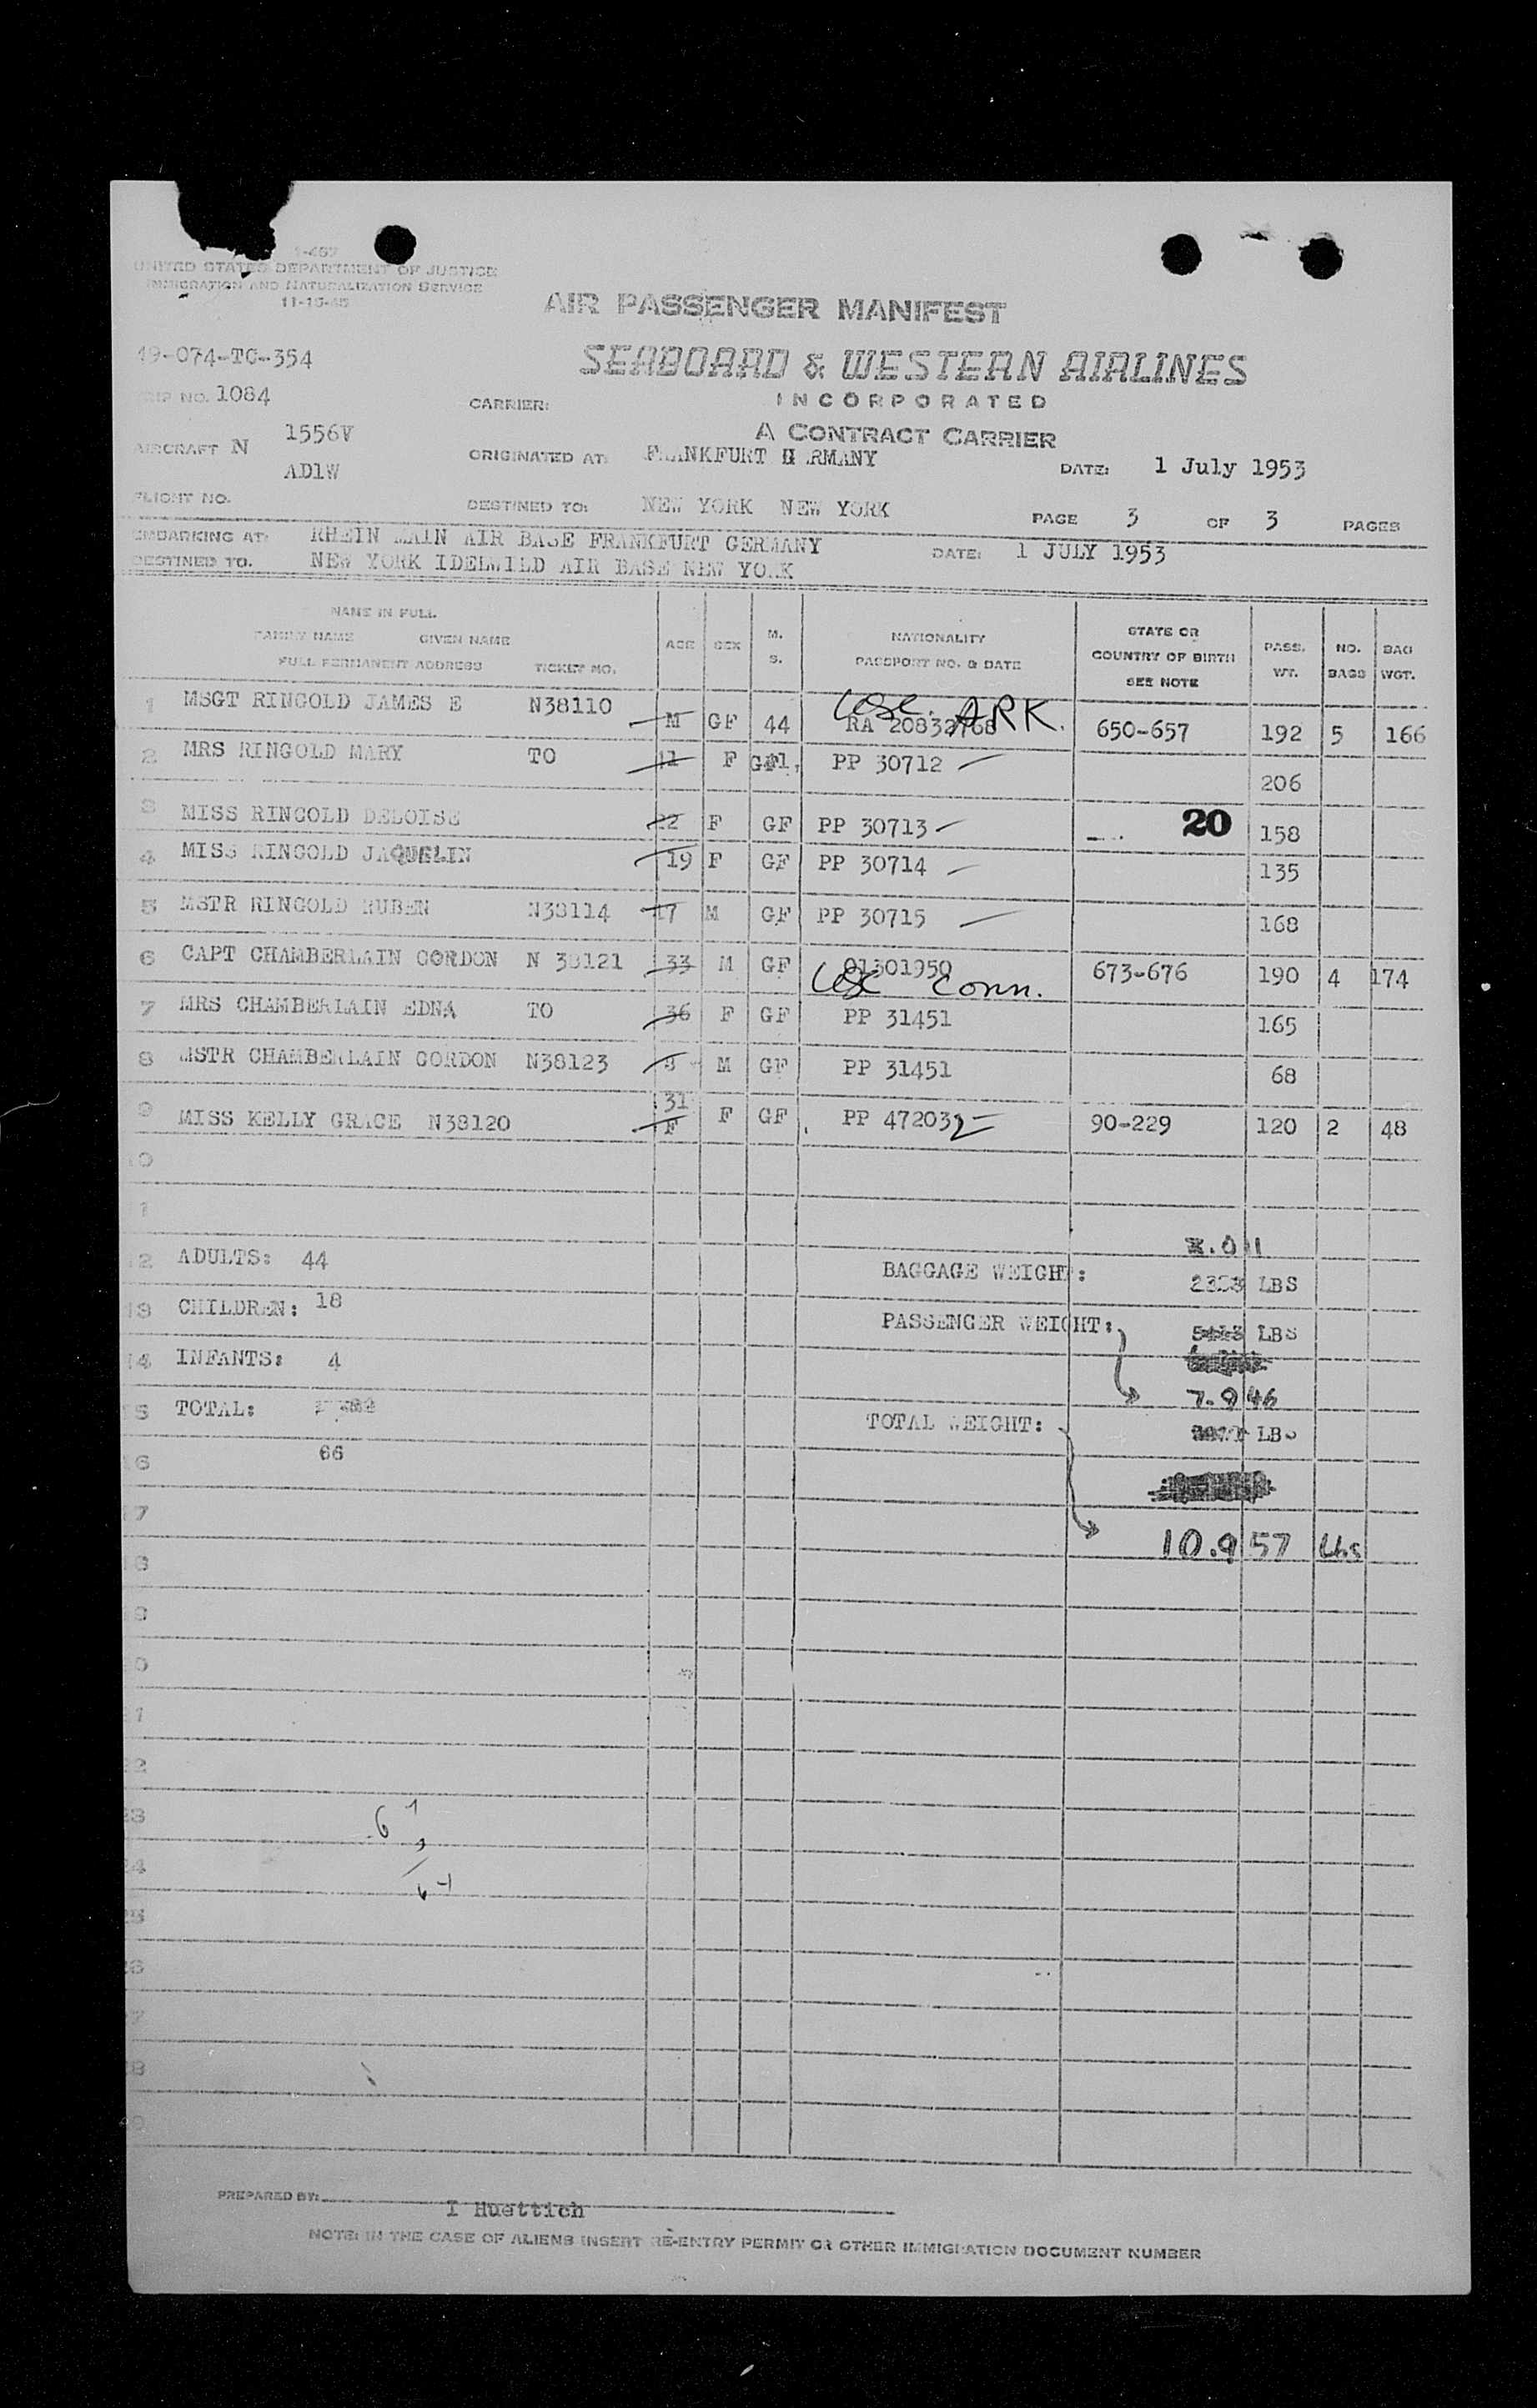 I-467
UNITED STATES DEPARTMENT OF JUSTICE
IMMIGRATION AND NATURALIZATION SERVICE
11-15-45
AIR PASSENGER MANIFEST
49-074-TC-354
SEABOARD & WESTERN AIRLINES
TRIP NO. 1084
CARRIER:
INCORPORATED
A CONTRACT CARRIER
AIRCRAFT N 1556V
AD1W
ORIGINATED AT: FRANKFURT RMANY
DATE: 1 July 1953
FLIGHT NO.
DESTINED TO: NEW YORK NEW YORK
PAGE 3 OF 3 PAGES
EMBARKING AT: RHEIN MAIN AIR BASE FRANKFURT GERMANY
DATE: 1 JULY 1953
DESTINED TO. NEW YORK IDELWILD AIR BASE NEW YORK
NAME IN FULL
FAMILY NAME GIVEN NAME
FULL PERMANENT ADDRESS TICKET NO.
AGE SEX M. S.
NATIONALITY PASSPORT NO. & DATE
STATE OR COUNTRY OF BIRTH SEE NOTE
PASS. WT. NO. BAGS BAG WGT.
1 MSGT RINGOLD JAMES E N38110 M GF 44 USC. ARK. RA 650-657 192 5 166
2 MRS RINGOLD MARY TO 41 F GF PP 30712 206
3 MISS RINGOLD DELOISE 22 F GF PP 30713 20 158
4 MISS RINGOLD JAQUELIN 19 F GF PP 30714 135
5 MSTR RINGOLD RUBEN N38114 17 M GF PP 30715 168
6 CAPT CHAMBERLAIN GORDON N 38121 33 M GF 01301950 USC Conn. 673-676 190 4 174
7 MRS CHAMBERLAIN EDNA TO 36 F GF PP 31451 165
8 MSTR CHAMBERLAIN GORDON N38123 M GF PP 31451 68
9 MISS KELLY GRACE N38120 31 F F GF PP 472032 90-229 120 2 48
10
11
12 ADULTS: 44
BAGGAGE WEIGHT: LBS
13 CHILDREN: 18
PASSENGER WEIGHT: LBS
14 INFANTS: 4
7.946
15 TOTAL:
TOTAL WEIGHT: LBS
16 66
17
10.957 Lbs
18
19
20
21
22
23
24
25
26
27
28
29
PREPARED BY: I Huettich
NOTE: IN THE CASE OF ALIENS INSERT RE-ENTRY PERMIT OR OTHER IMMIGRATION DOCUMENT NUMBER